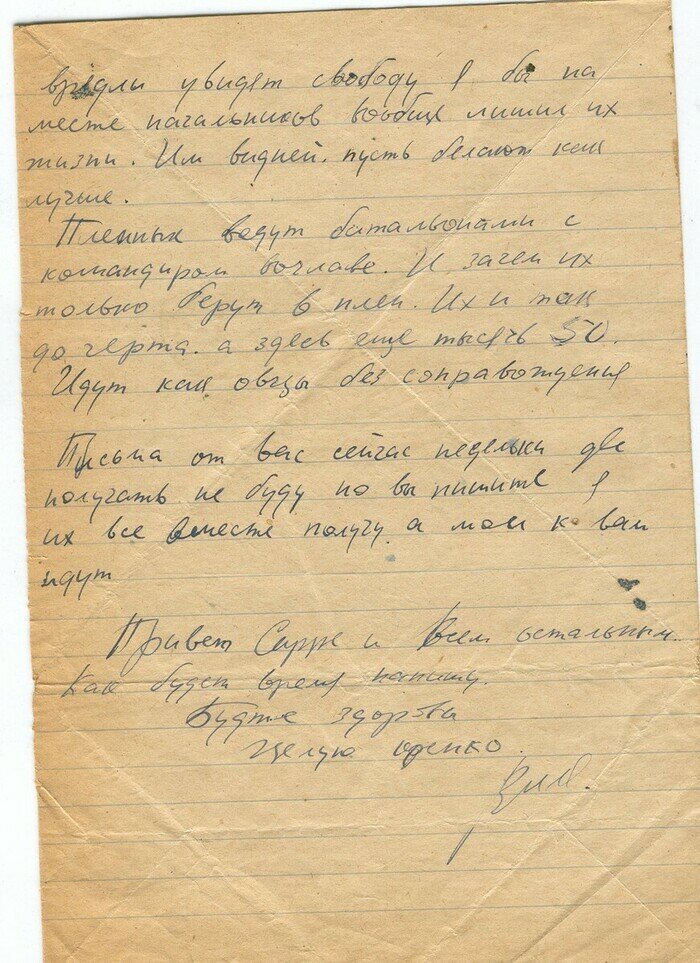 врядли увидят свободу я бы на
месте начальников вообще лишил их
жизни. Им видней. пусть делают как
лучше.
Пленных ведут батальонами с
командиром вочлаве. И зачем их
только берут в плен. Их и так
до чёрта. а здесь еще тысячь 50.
Идут как овцы без соправождения
Письма от вас сейчас недельки две
получать не буду но вы пишите я
их все вместе получу а мои к вам
идут
Привет Сарре и всем остальным.
Как будет время напишу.
Будте здоровы
Целую крепко.